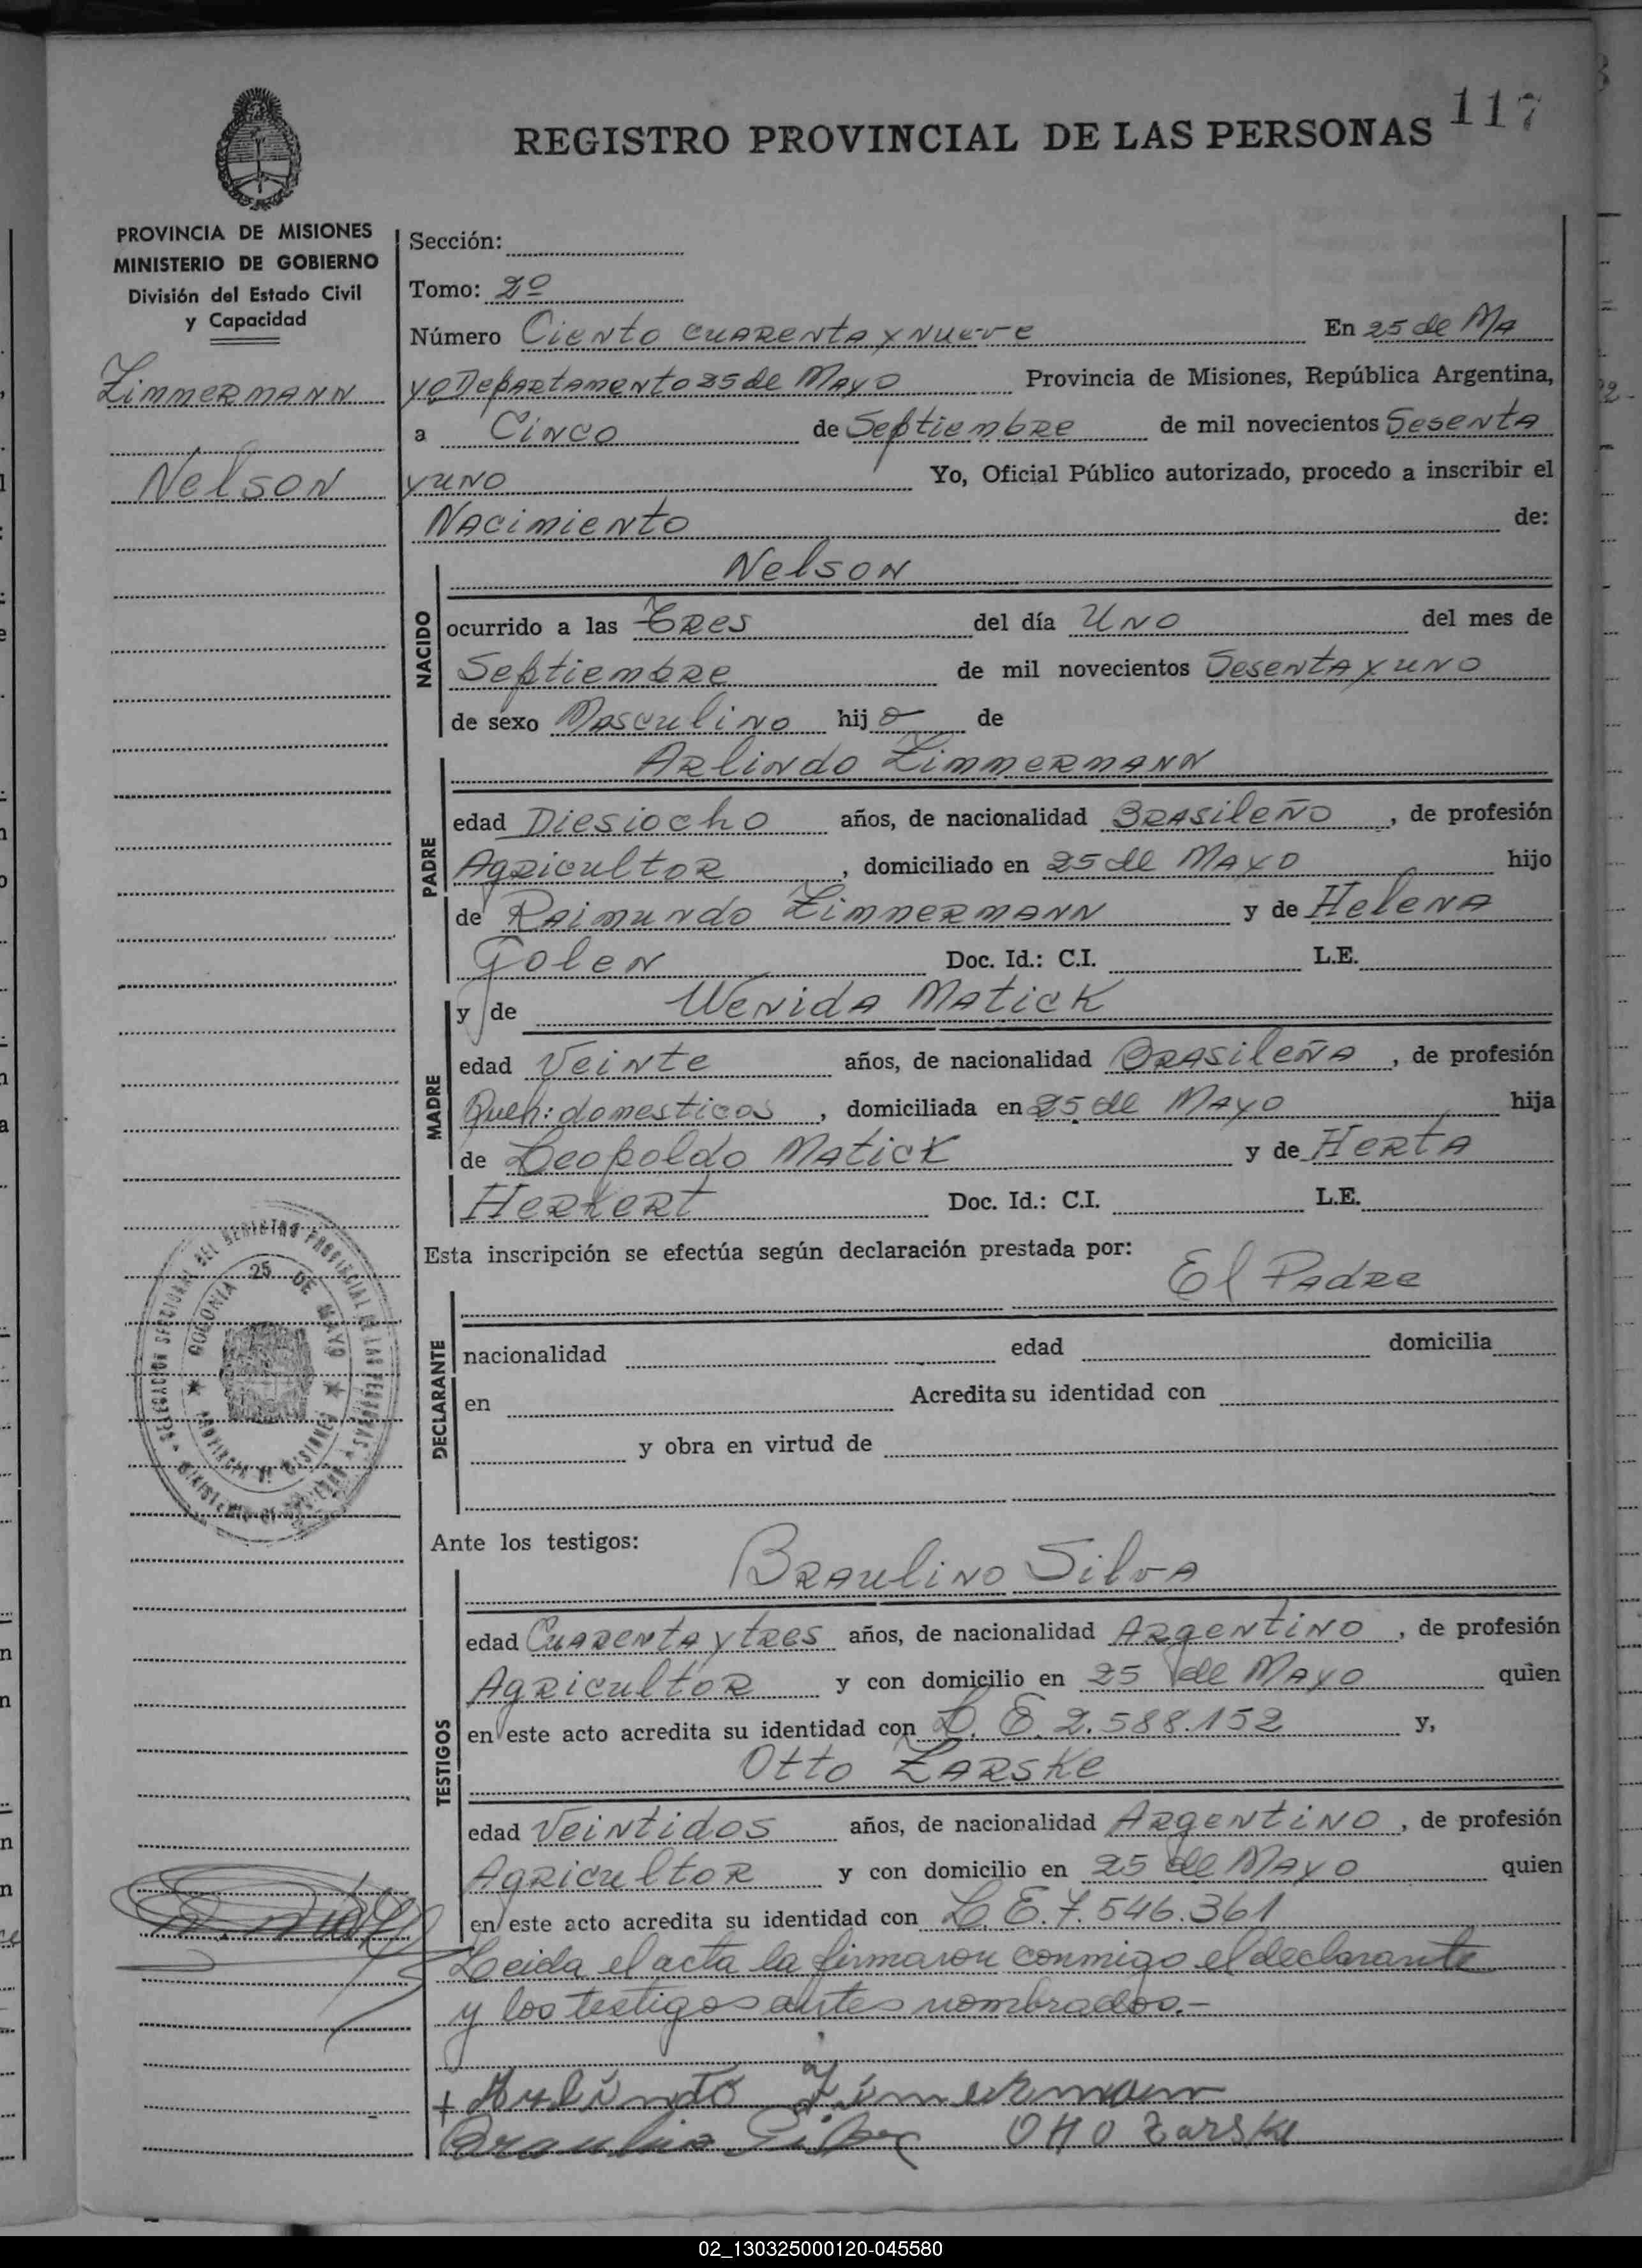 REGISTRO PROVINCIAL DE LAS PERSONAS 117
PROVINCIA DE MISIONES
MINISTERIO DE GOBIERNO
División del Estado Civil
y Capacidad
Zimmermann
Nelson
Sección:
Tomo: 2º
Número Ciento cuarenta y nueve En 25 de Ma
yo Departamento 25 de Mayo Provincia de Misiones, República Argentina,
a Cinco de Septiembre de mil novecientos Sesenta
y uno Yo, Oficial Público autorizado, procedo a inscribir el
Nacimiento de:
Nelson
NACIDO
ocurrido a las Tres del día Uno del mes de
Septiembre de mil novecientos Sesenta y uno
de sexo Masculino hijo de
Arlindo Zimmermann
PADRE
edad Diesiocho años, de nacionalidad Brasileño, de profesión
Agricultor, domiciliado en 25 de Mayo hijo
de Raimundo Zimmermann y de Helena
Golen Doc. Id.: C.I. L.E.
MADRE
y de Wenida Matick
edad Veinte años, de nacionalidad Brasileña, de profesión
Queh: domesticos, domiciliada en 25 de Mayo hija
de Leopoldo Matick y de Herta
Herkert Doc. Id.: C.I. L.E.
Esta inscripción se efectúa según declaración prestada por:
El Padre
DECLARANTE
nacionalidad edad domicilia
en Acredita su identidad con
y obra en virtud de
DELEGACION SECCIONAL DEL REGISTRO PROVINCIAL DE LAS PERSONAS
COLONIA 25 DE MAYO
PROVINCIA DE MISIONES
Ante los testigos:
Braulino Silva
TESTIGOS
edad Cuarenta y tres años, de nacionalidad Argentino, de profesión
Agricultor y con domicilio en 25 de Mayo quien
en este acto acredita su identidad con L. E. 2.588.152 y,
Otto Zarske
edad Veintidos años, de nacionalidad Argentino, de profesión
Agricultor y con domicilio en 25 de Mayo quien
en este acto acredita su identidad con L. E. 7.546.361
Leida el acta la firmaron conmigo el declarante
y los testigos antes nombrados.-
+ Arlindo Zimermann
Braulino Silva Otto Zarske
02_130325000120-045580